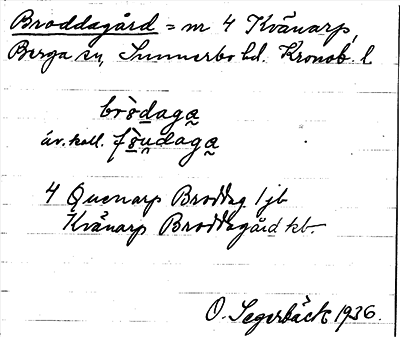 Broddagård = nr 4 Kvänarp,
Berga sn, Sunnerbo hd. Kronob. l
bròdaga
äv. kall. fòudaga
4 Quenarp Broddag 1 jb
Kvänarp Broddagård kb.
O. Segerbäck 1936.